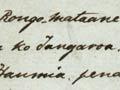 Rongo-mataane
ko Tangaroa.
Haumia, pena